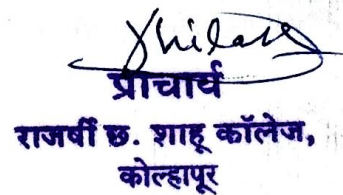 प्राचार्य
राजर्षी छ. शाहू कॉलेज,
कोल्हापूर